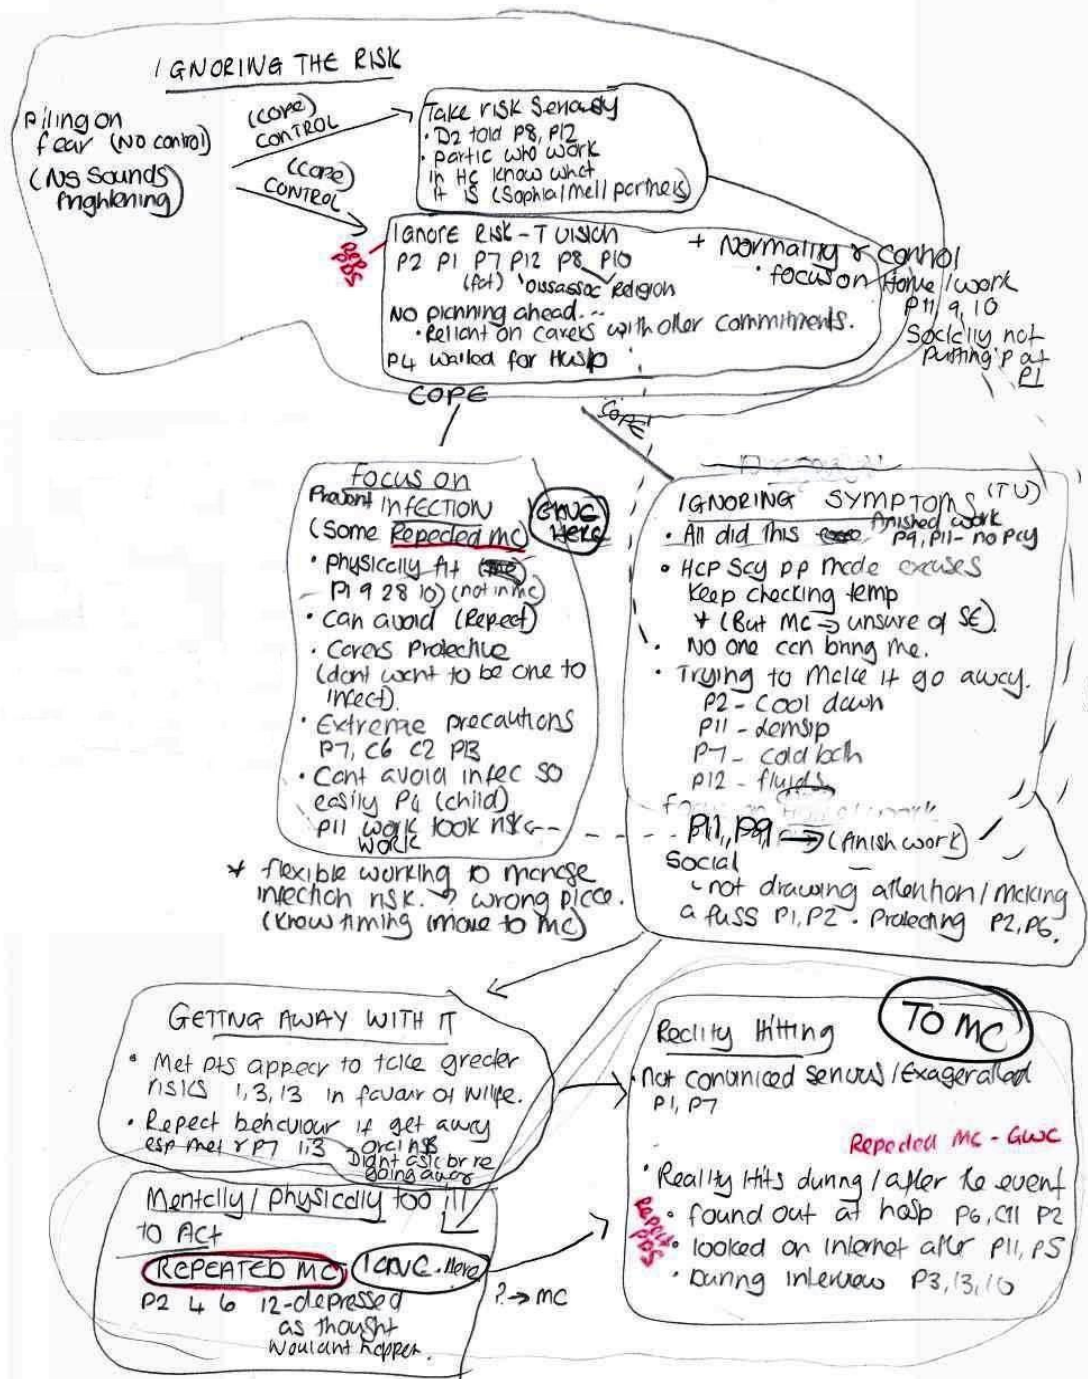 IGNORING THE RISK
Piling on
fear (No control)
(NS Sounds
frightening)
(COPE)
CONTROL
(COPE)
CONTROL
Take risk Seriously
• D2 told P8, P12
• partic who work
in HC know what
it is (Sophia/Mell partners)
Ignore Risk - T vision
P2 P1 P7 P12 P8 P10
(fat) Religion
No planning ahead...
• Reliant on carers with other commitments.
P4 waited for Husb
+ Normality & control
• focus on Home/work
P11, 9, 10
Socially not
putting p at
P1
COPE
COPE
Focus on
Prevent INFECTION
(Some Repeated MC)
GWC
Here
• Physically fit
P1 9 28 10) (not in MC)
• Can avoid (Repeat)
• Carers Protective
(dont want to be one to
infect).
• Extreme precautions
P7, C6 C2 P13
• Cant avoid infec so
easily P4 (child)
P11 work took risk
WORK
* flexible working to manage
infection risk. → wrong place.
(Know timing (move to MC)
IGNORING SYMPTOMS (TV)
• All did this Finished work
P9, P11 - no pay
• HCP Say pp made excuses
Keep checking temp
* (But MC → unsure of SE).
• No one can bring me.
• Trying to make it go away.
P2 - Cool down
P11 - Lemsip
P7 - cold bath
P12 - fluids
P11, P9 → (finish work)
Social
not drawing attention/making
a fuss P1, P2. Protecting P2, P6.
GETTING AWAY WITH IT
• Met pts appear to take greater
risks 1, 3, 13 in favour of wife.
• Repeat behaviour if get away
esp met & P7 1:3
Didnt ask br re
going away
Mentally/physically too ill
to Act
REPEATED MC GWC. Here
P2 4 6 12 - depressed
as thought
wouldnt happen.
? → MC
TO MC
Reality Hitting
• Not convinced serious/Exagerated
P1, P7
Repeated MC - GWC
• Reality Hits during/after the event
• found out at hosp P6, C11 P2
• looked on internet after P11, P5
• During interview P3, 13, 10